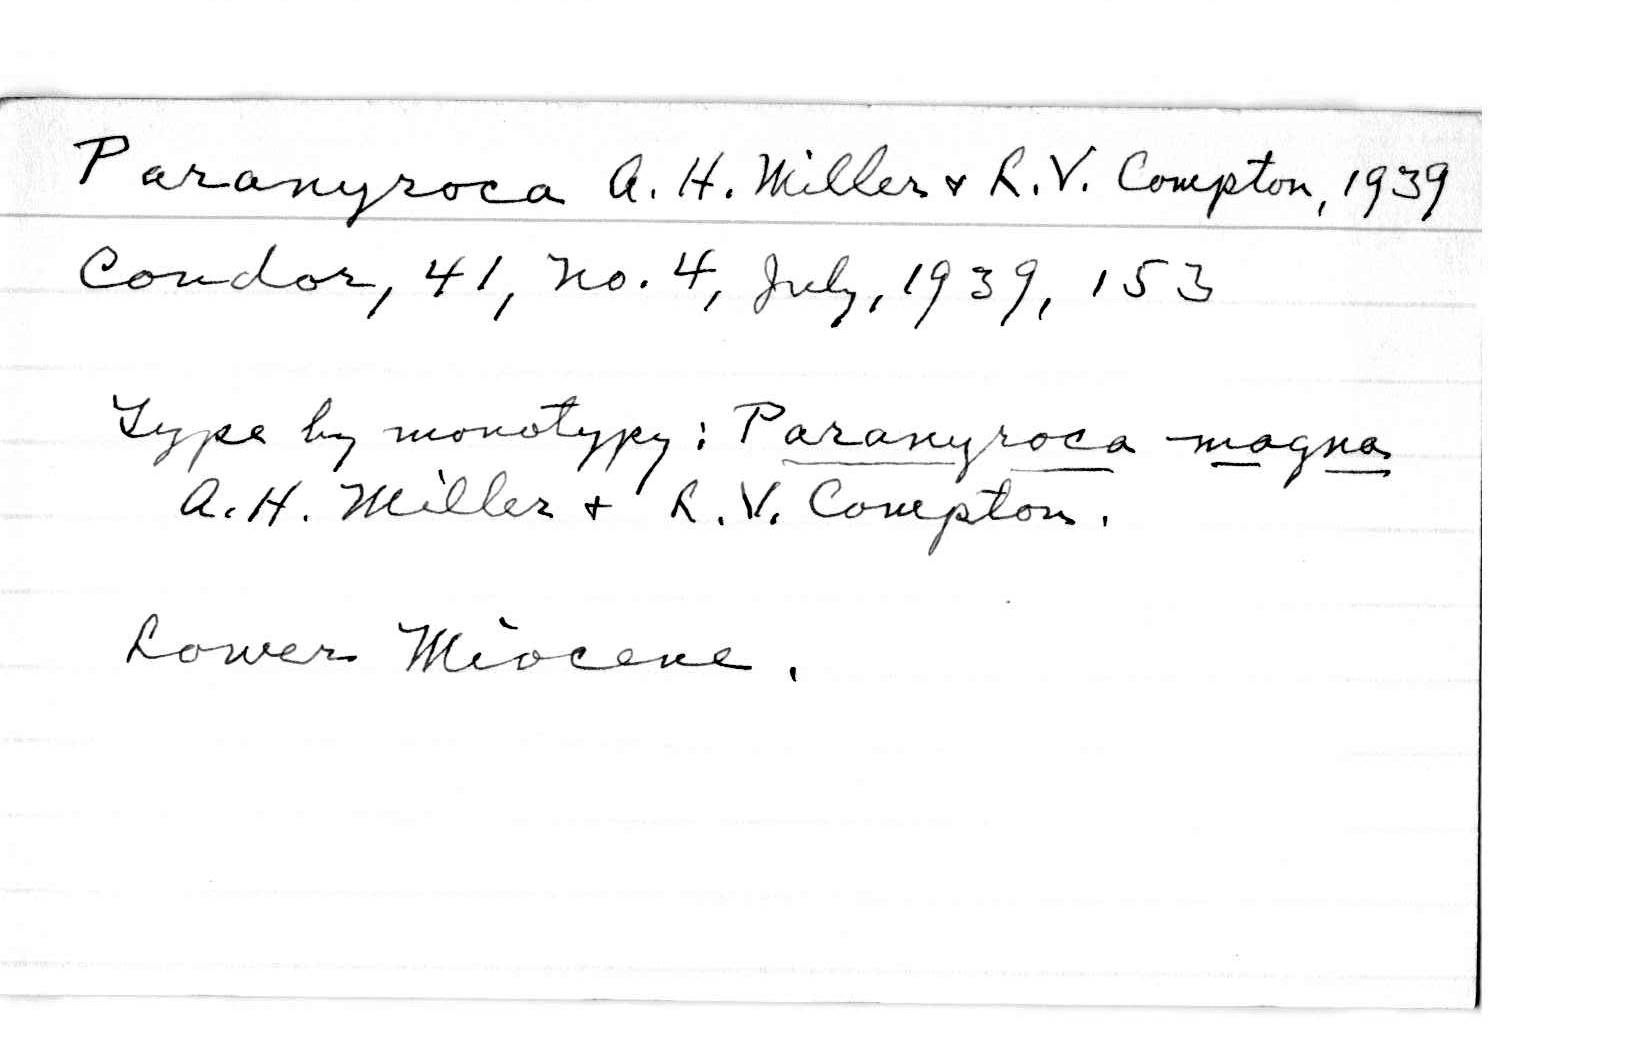 Paranyroca A. H. Miller & L. V. Compton, 1939
Condor, 41, no. 4, July, 1939, 153
Type by monotypy: Paranyroca magna
A. H. Miller & L. V. Compton.
Lower Miocene.